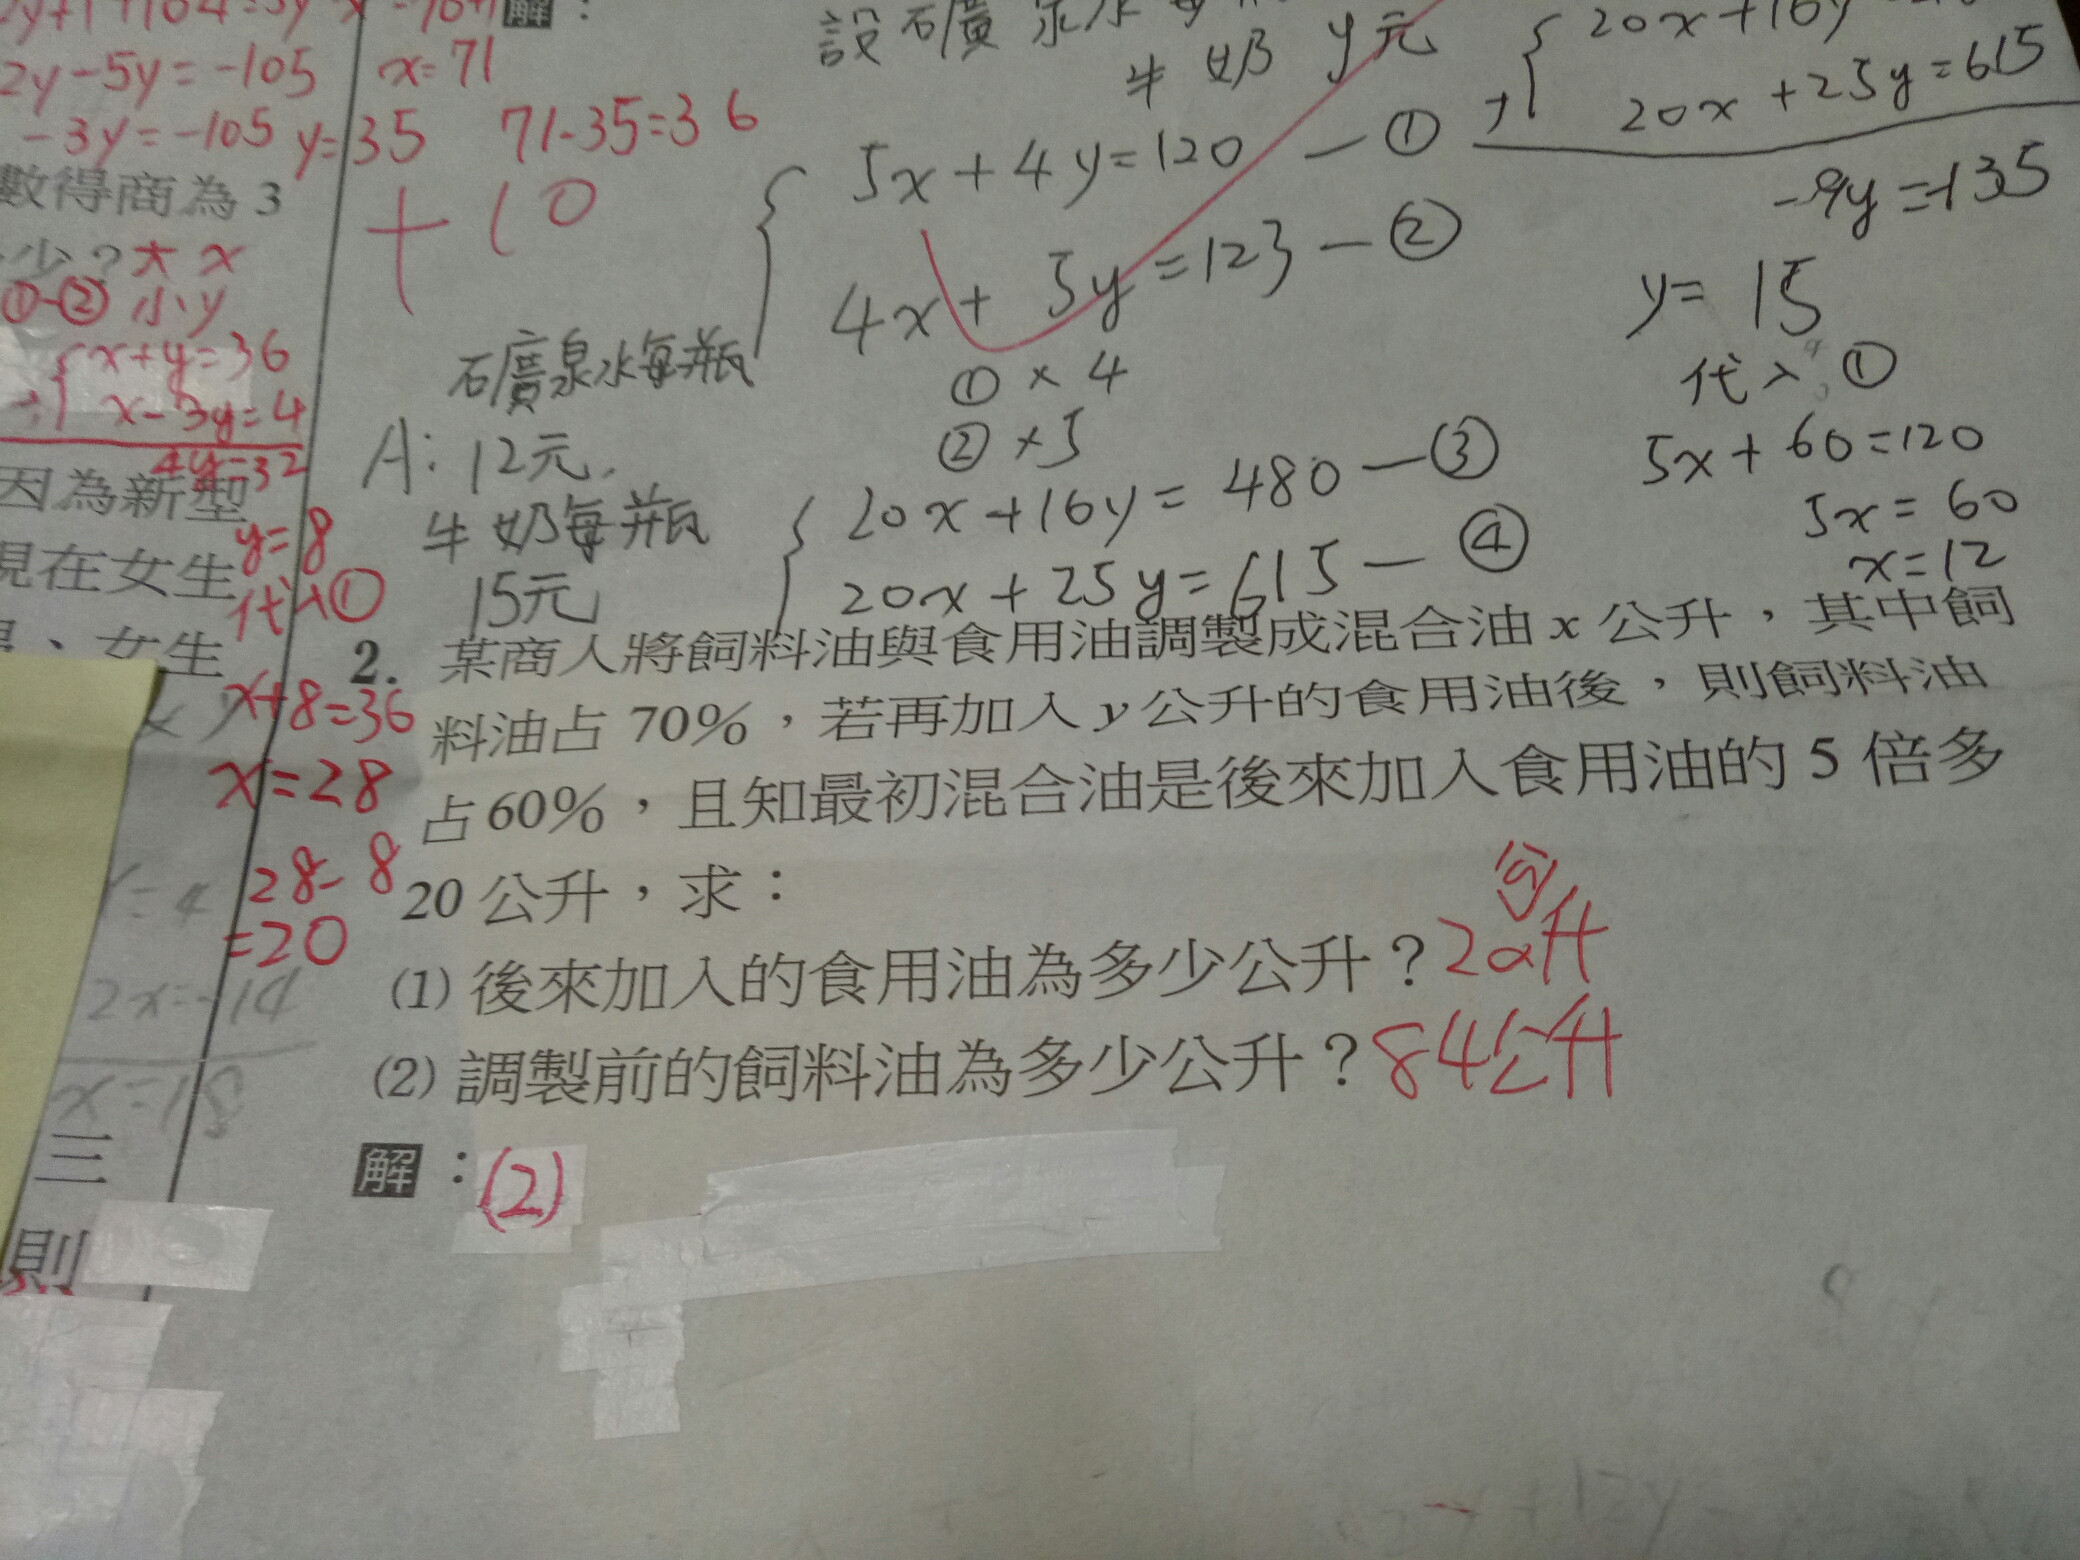 2y-5y=-105
x=71
-3y=-105 y=35
71-35=36
+10
數得商為3
少?大 x
①-② 小 y
x+y=36
x-3y=4
4y=32
因為新型
y=8
現在女生
代入①
、女生
x+8=36
x=28
28-8
=20
2x=-14
三
則
解:
牛奶 y元
5x+4y=120 —①
4x+5y=123 —②
①×4
②×5
20x+16y=480 —③
20x+25y=615 —④
20x+16y
20x+25y=615
-9y=-135
y=15
代入①
5x+60=120
5x=60
x=12
礦泉水每瓶
A:12元.
牛奶每瓶
15元
2. 某商人將飼料油與食用油調製成混合油 x 公升,其中飼
料油占 70%,若再加入 y 公升的食用油後,則飼料油
占 60%,且知最初混合油是後來加入食用油的 5 倍多
20 公升,求:
(1) 後來加入的食用油為多少公升?20公升
(2) 調製前的飼料油為多少公升?84公升
解:(2)